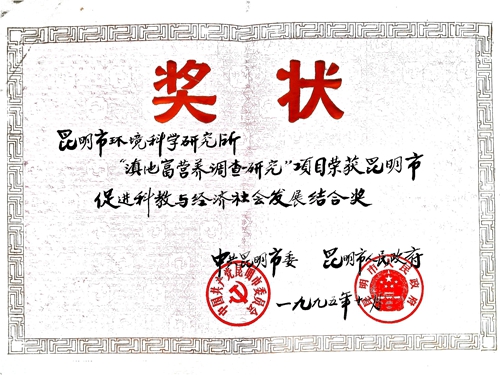 奖状
昆明市环境科学研究所
“滇池富营养调查研究”项目荣获昆明市
促进科教与经济社会发展结合奖
中共昆明市委 昆明市人民政府
中国共产党昆明市委员会
昆明市人民政府
一九九五年十月